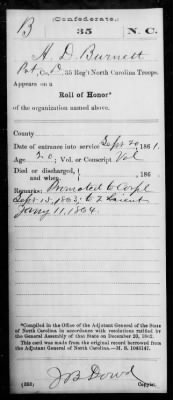 (Confederate.)
B 35 N. C.
A. D. Burnett
Pvt, Co. D, 35 Reg't North Carolina Troops.
Appears on a
Roll of Honor*
of the organization named above.
County
Date of entrance into service Sept 20, 1861.
Age 20; Vol. or Conscript Vol
Died or discharged, and when , 186 .
Remarks: Promoted to Corpl
Sept. 15, 1862; Lieut
Jany 11, 1864.
*Compiled in the Office of the Adjutant General of the State
of North Carolina in accordance with resolutions ratified by
the General Assembly of that State on December 20, 1862.
This card was made from the original record borrowed from
the Adjutant General of North Carolina.—M. S.
J B Dowd
Copyist.